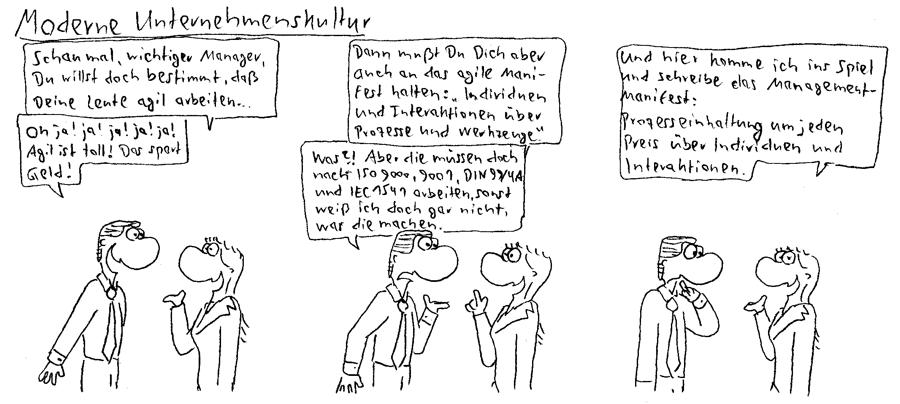 Moderne Unternehmenskultur
Schau mal, wichtiger Manager,
Du willst doch bestimmt, daß
Deine Leute agil arbeiten...
Oh ja! ja! ja! ja! ja!
Agil ist toll! Das spart
Geld!
Dann mußt Du Dich aber
auch an das agile Mani-
fest halten: „Individuen
und Interaktionen über
Prozesse und Werkzeuge“
Was?! Aber die müssen doch
nach ISO 9000, 9001, DIN
und IEC 1541 arbeiten, sonst
weiß ich doch gar nicht,
was die machen.
Und hier komme ich ins Spiel
und schreibe das Management-
manifest:
Prozesseinhaltung um jeden
Preis über Individuen und
Interaktionen.